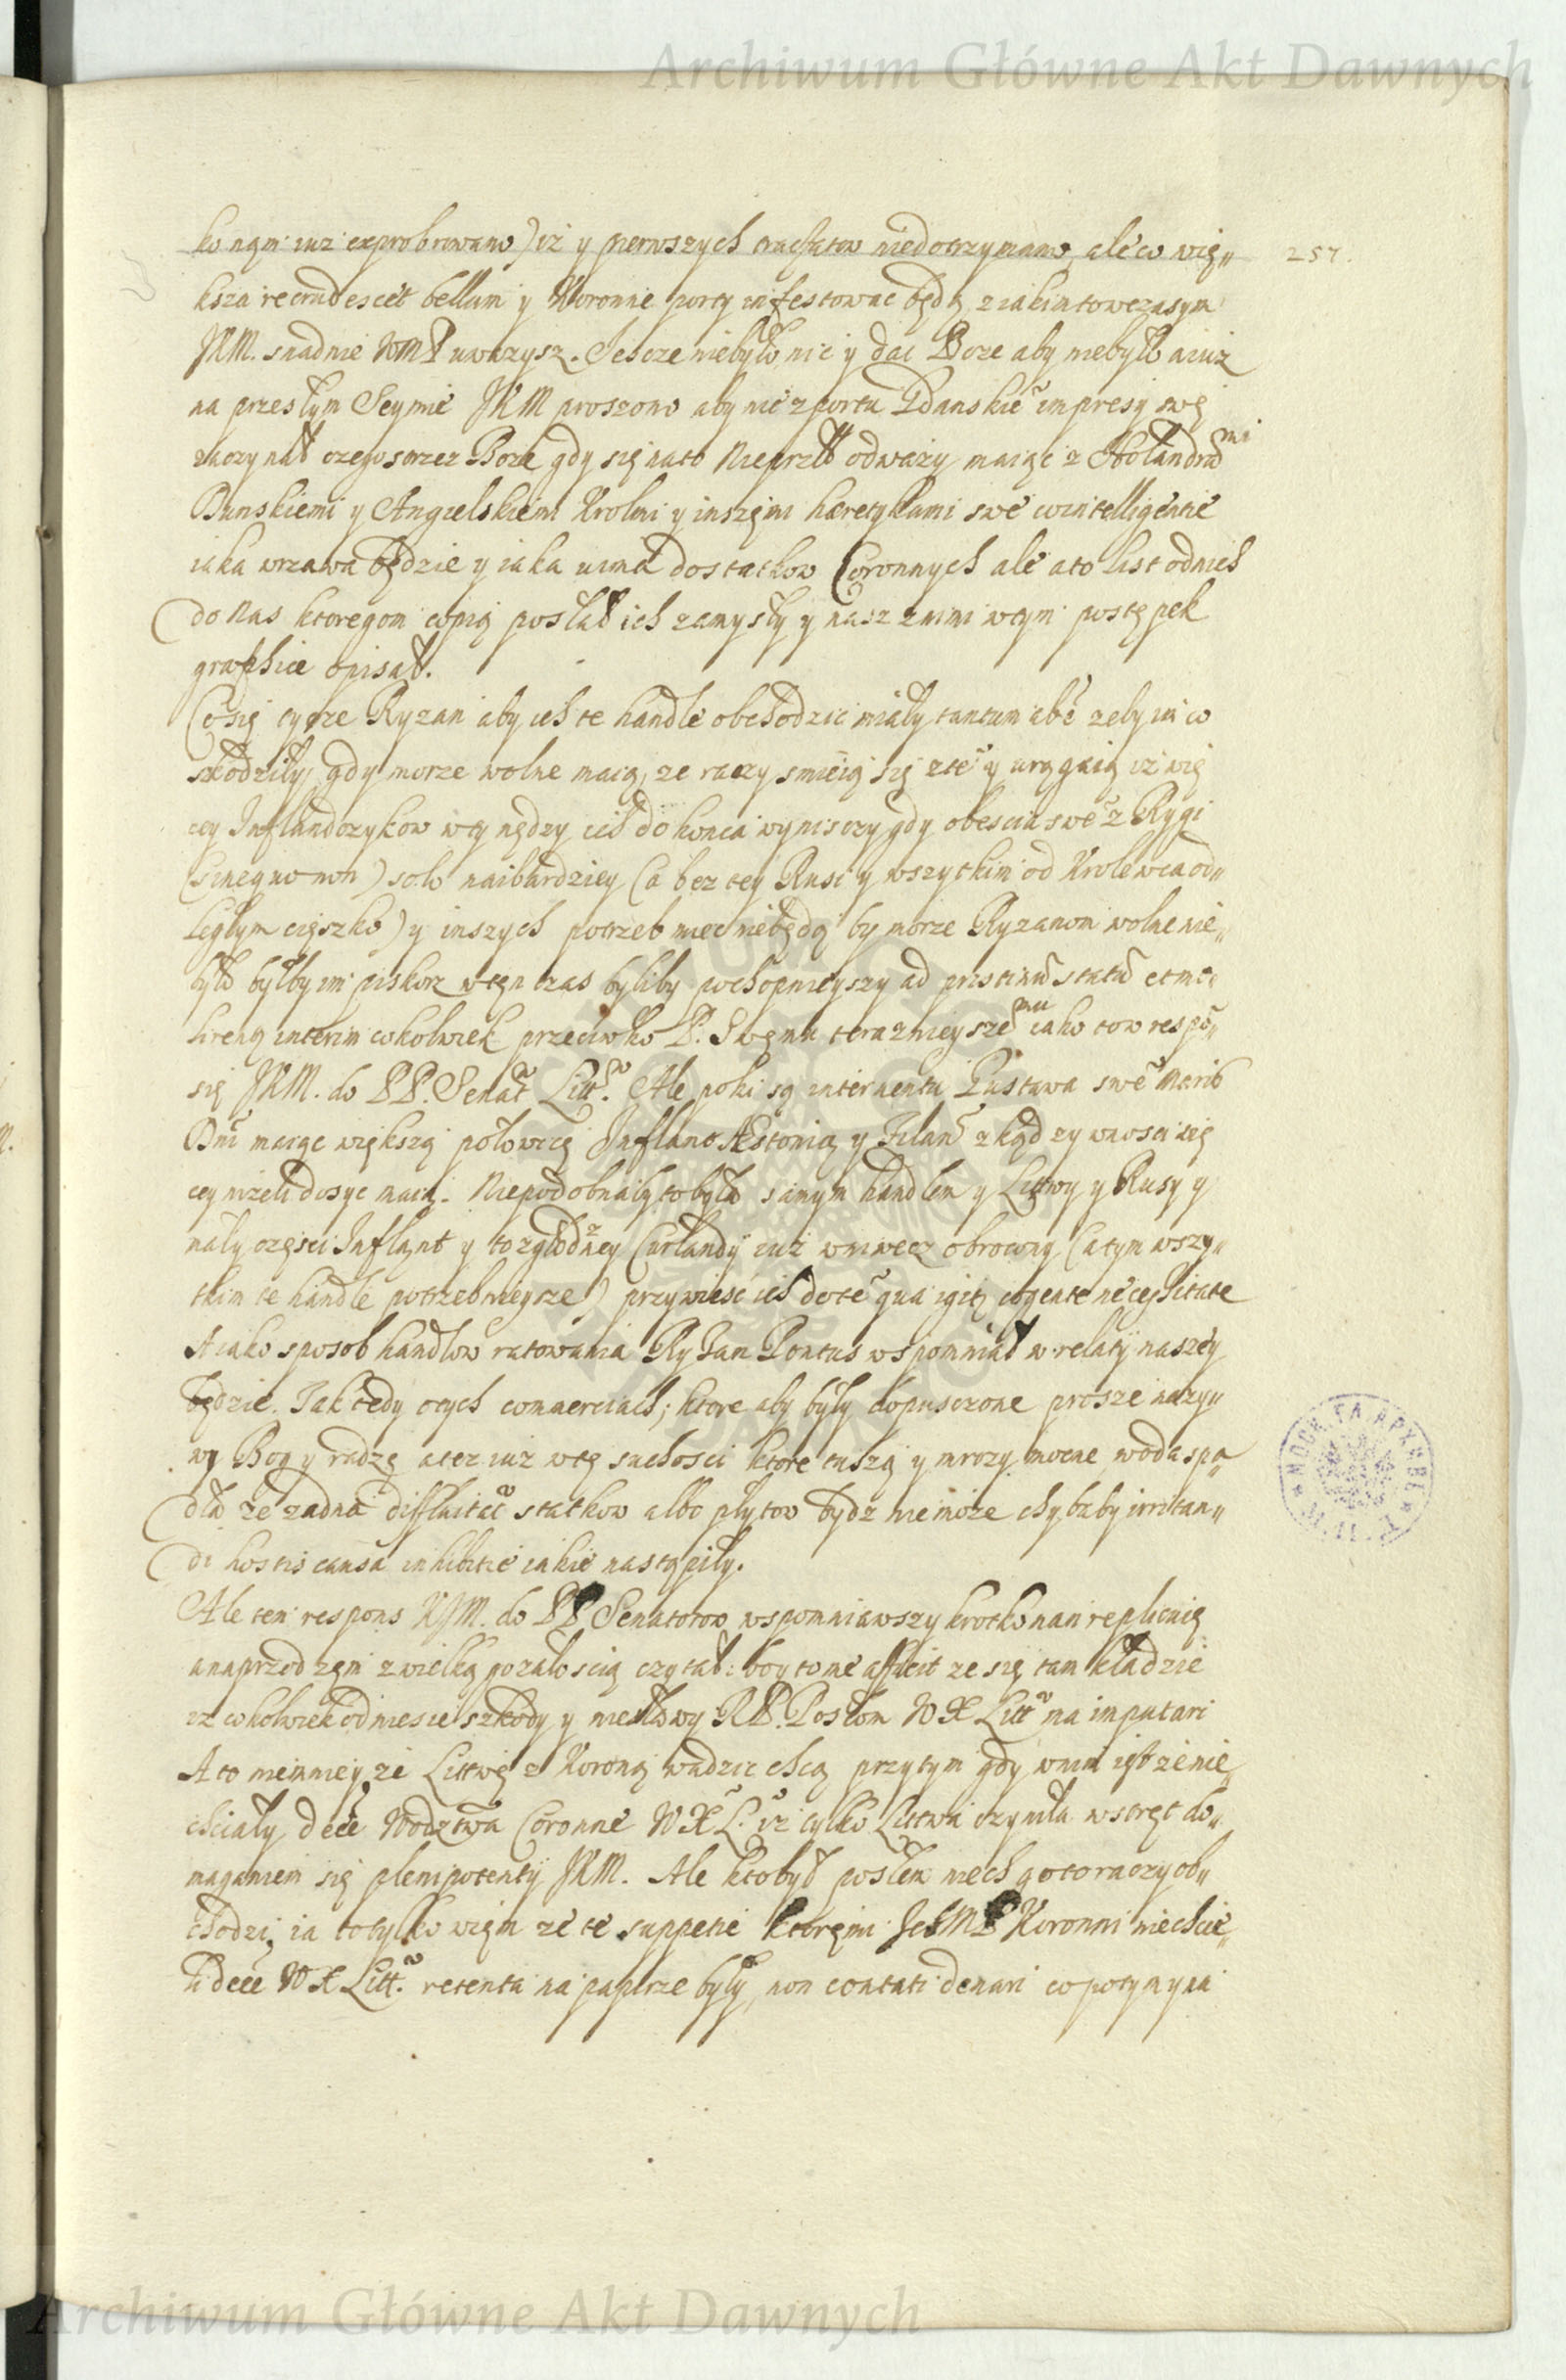 Archiwum Główne Akt Dawnych
257.
ko nąm iuz exprobrowano) iż y pierwszych tractatow niedotrzymano, ale co wię„
ksza recrudescet bellum y Koronne porty infestowac będą z iakim to wczasym
JKM. snadnie WMP uwazysz. Jescze niebyło nic y dai Boze aby niebyło a iuż
na przesłym Seymie JKM proszono aby nie z portu Gdanskie impresy swę
zaczynał czego strzez Boze gdy się na to Nieprzl odwazy maiąc z Holandrami
Dunskiemi y Angielskiemi Krolmi y inszęmi hæretykami swe intelligentie
iaka wrzawa będzie y iaka uima dostatkow Coronnych ale a to list od nich
do nas ktoregom copią posłał ich zamysły y nasz z nimi w tym postępek
graphice opisał.
Co się tycze Ryzan aby ich te handle obchodzic miały tantum abe zeby im co
szkodziły, gdy morze wolne maią, ze raczy smieią się z te y urągaią iz wię
cey Inflandczykow w tey nędzy ich do konca wynisczy gdy obescia swe z Rygi
(sine quo non) solo naibardziey (a bez tey Rusi y wszytkim od Krolewca od„
ległym cięszko) y inszych potrzeb miec niebędą by morze Ryzanom wolne nie„
było byłby im piskorz w ten czas byliby pochopnieyszy ad pristinu statu et me
lirenq interim cokolwiek przeciwko P. Swęmu teraznieyszemu iako to w respo„
się JKM. do PP. Senat Litt. Ale poki są intermenta Gustawa swe Maris
Dni maiąc większą połowicę Infland Estonią y Filan zkąd zywnosci wię
cey nizeli dosyc maią. Niepodobnaiby to była samym handlem y Littwy y Rusy y
mały części Inflant y to zgłodzney Curlandy iuż wniwecz obrocony (a tym wszy„
tkim te handle potrzebnieysze) przywiesć ich do te qua igit cogente necessitate
A iako sposob handlow ratowania Ryzan Pontus wspominał w relaty naszey
będzie. Jak tedy o tych commerciach; ktore aby były dopusczone prosze na zy„
wy Bog y radzę a tez iuż w tę suchosci ktore tuszą y mrozy mocne, woda spa„
dła ze zadna difluitat statkow albo płytow bydz nie może chybaby irritan„
di hostis causa inhibitie iakie nastąpiły.
Ale ten respons KJM. do PP Senatorow wspomniawszy krotko nan replicuię
a naprzod zęm z wielką gozałoscią czytał: boy to me afficit ze się tam kładzie
iz cokolwiek odniesie szkody y niesławy RP. Posłom WX Litt ma imputari
A to niemniey ze Littwę z Koroną wadzic chcą przytym gdy wnią iest ze nie„
chciały dece Wodztwa Coronne WXL. iz tylko Littwa czyniła wstręt do„
maganiem się plenipotenty JKM. Ale kto był posłem niech go to raczy ob„
chodzi, ia to tylko więm ze te suppetie ktoręmi JchMP Koronni niechcie„
li dece WX Litt. retenta na papirze były, non contati denari co potym yna
Archiwum Główne Akt Dawnych